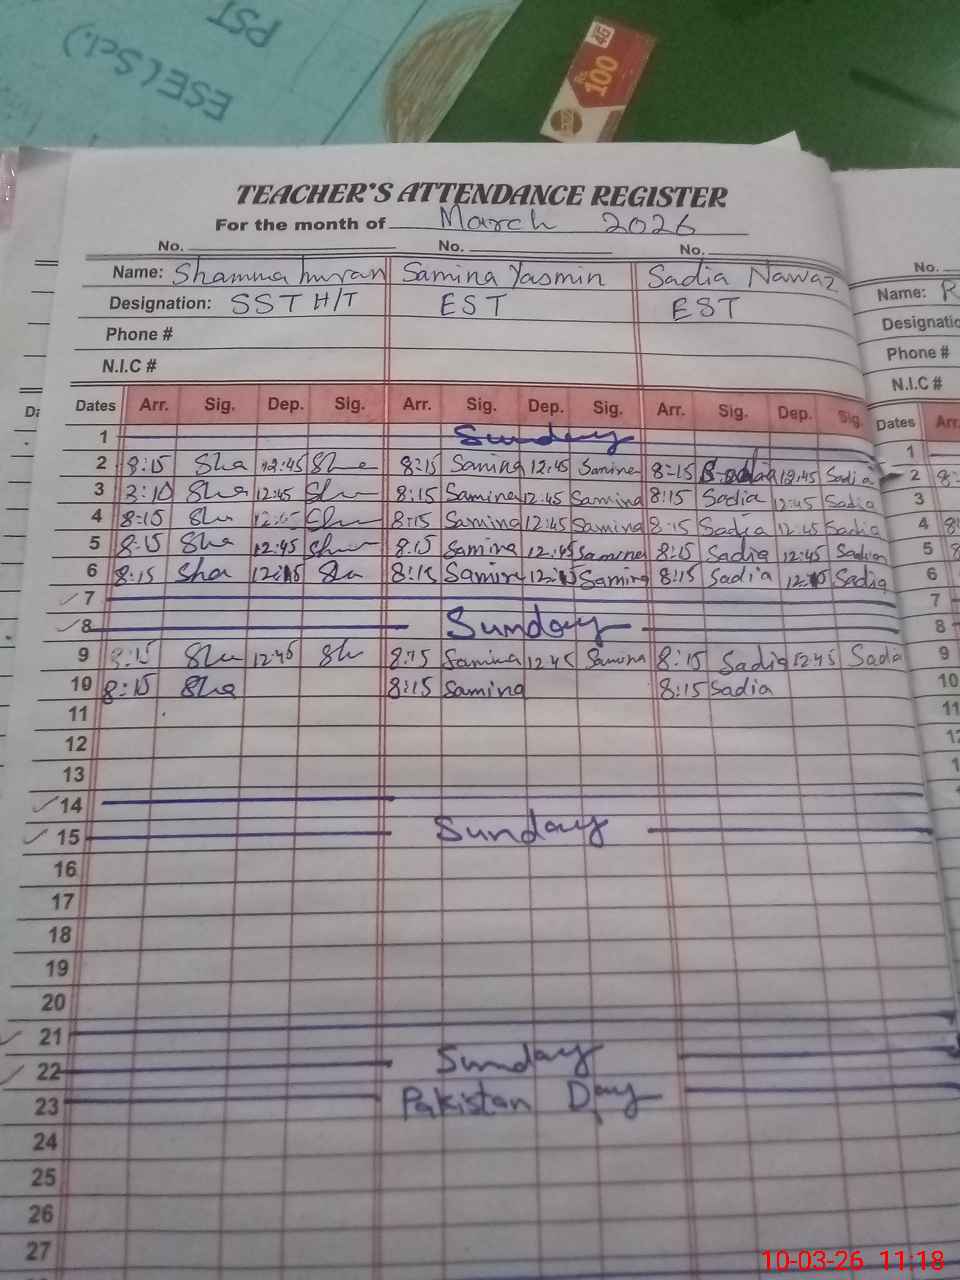 PST
ESE(Sci.)
Rs 100 4G
TEACHER'S ATTENDANCE REGISTER
For the month of March 2026
No. No. No. No.
Name: Shamma Imran Samina Yasmin Sadia Nawaz Name: R
Designation: SST H/T EST EST
Phone # Phone #
N.I.C # N.I.C #
Dates Arr. Sig. Dep. Sig. Arr. Sig. Dep. Sig. Arr. Sig. Dep. Sig. Dates Arr.
1 Sunday 1
2 8:15 Sha 12:45 Sha 8:15 Samina 12:45 Samina 8:15 Sadia 12:45 Sadia 2 8:
3 8:10 Sha 12:45 Sha 8:15 Samina 12:45 Samina 8:15 Sadia 12:45 Sadia 3
4 8:15 Sha 12:45 Sha 8:15 Samina 12:45 Samina 8:15 Sadia 12:45 Sadia 4
5 8:15 Sha 12:45 Sha 8:15 Samina 12:45 Samina 8:15 Sadia 12:45 Sadia 5
6 8:15 Sha 12:15 Sha 8:15 Samina 12:15 Samina 8:15 Sadia 12:15 Sadia 6
7 7
8 Sunday 8
9 8:15 Sha 12:45 Sh 8:15 Samina 12:45 Samina 8:15 Sadia 12:45 Sadia 9
10 8:15 Sha 8:15 Samina 8:15 Sadia 10
11 11
12
13
14
15 Sunday
16
17
18
19
20
21
22 Sunday
23 Pakistan Day
24
25
26
27
10-03-26 11:18